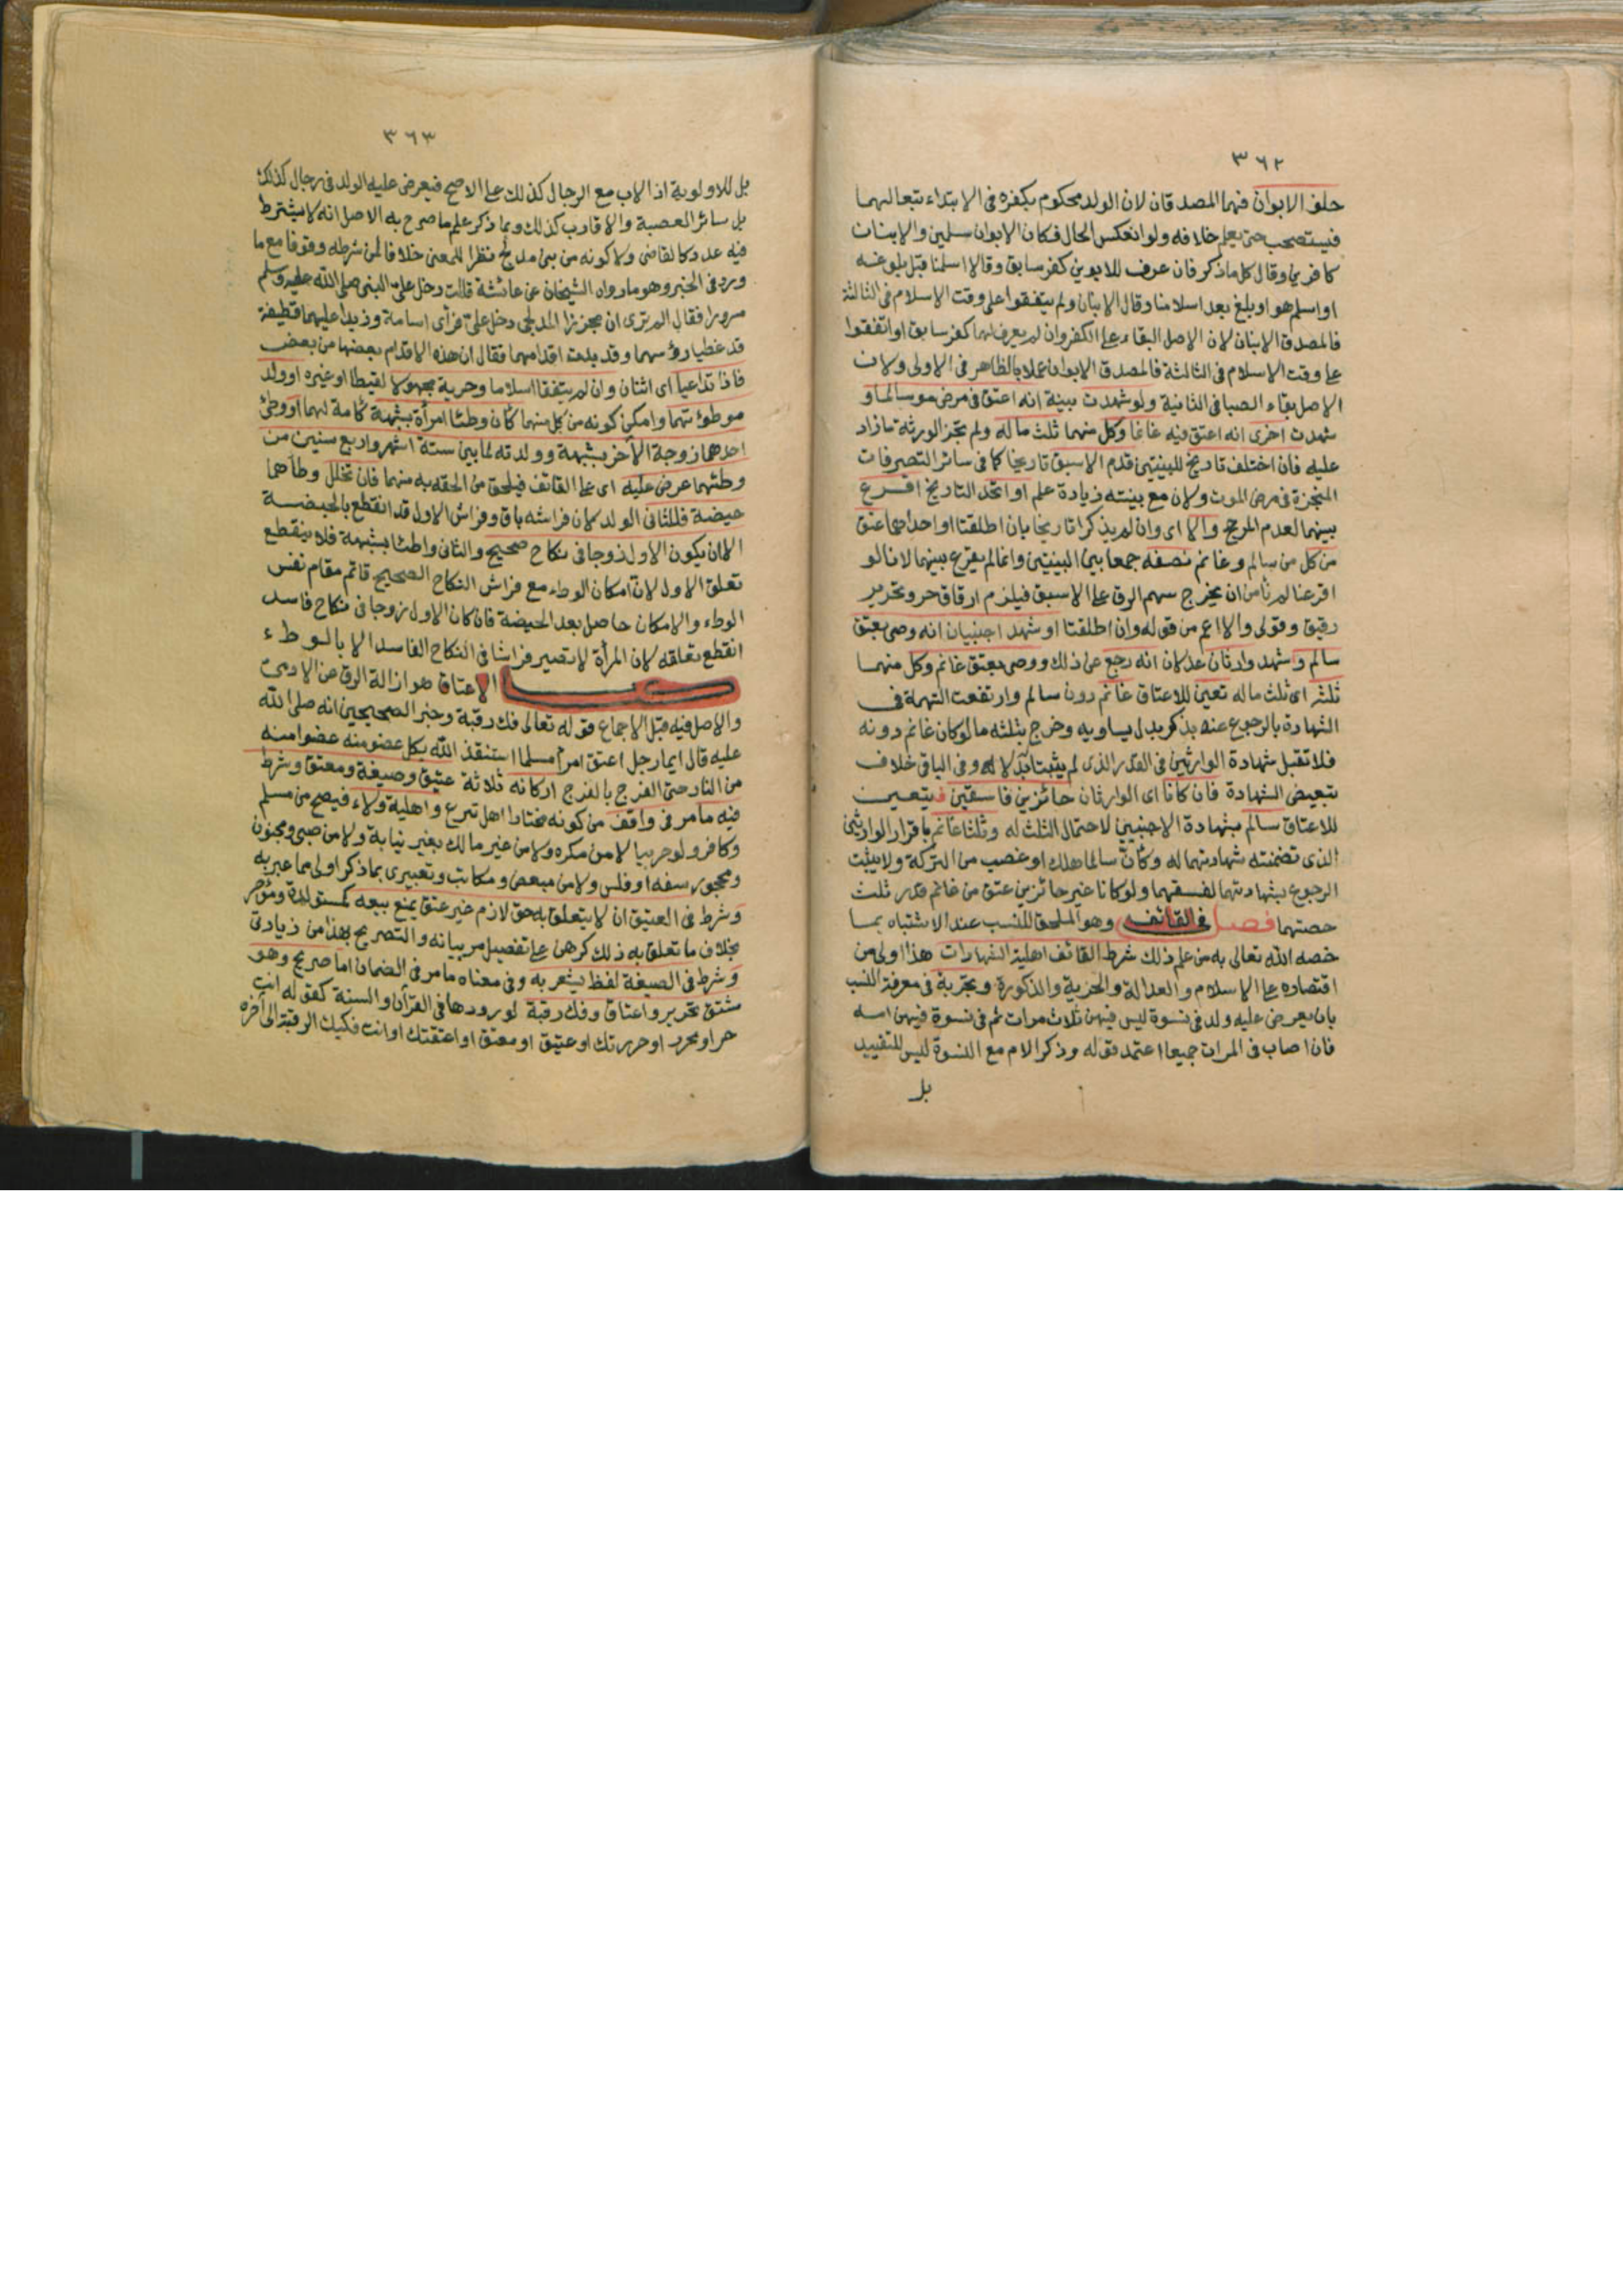 ٣٦٢
حلف الابوان فهما المصدقان لان الولد محكوم بكفره فى الابتداء تبعا لهما
فيستصحب حتى يعلم خلافه ولو انعكس الحال فكان الابوان مسلمين والابنان
كافرين وقال كل ما ذكر فان عرف للابوين كفر سابق وقالا اسلمنا قبل بلوغه
او اسلم هو او بلغ بعد اسلامنا وقال الابنان ولم يتفقوا على وقت الاسلام فى الثالثة
فالمصدق الابنان لان الاصل البقاء على الكفر وان لم يعرف لهما كفر سابق او اتفقوا
على وقت الاسلام فى الثالثة فالمصدق الابوان عملا بالظاهر فى الاولى ولان
الاصل بقاء الصبا فى الثانية ولو شهدت بينة انه اعتق فى مرض موته سالما و
شهدت اخرى انه اعتق فيه غانما وكل منهما ثلث ماله ولم تجز الورثة ما زاد
عليه فان اختلف تاريخ للبينتين قدم الاسبق تاريخا كما فى سائر التصرفات
المنجزة فى مرض الموت ولان مع بينته زيادة علم او اتحد التاريخ اقرع
بينهما لعدم المرجح والا اى وان لم يذكرا تاريخا بان اطلقتا او احداهما عتق
من كل من سالم وغانم نصفه جمعا بين البينتين وانما لم يقرع بينهما لانا لو
اقرعنا لم نامن ان يخرج سهم الرق على الاسبق فيلزم ارقاق حر وتحرير
رقيق وقولى والا اعم من قوله وان اطلقتا او شهد اجنبيان انه وصى بعتق
سالم وشهد وارثان عدلان انه رجع عن ذلك ووصى بعتق غانم وكل منهما
ثلثه اى ثلث ماله تعين للاعتاق غانم دون سالم وارتفعت التهمة فى
الشهادة بالرجوع عنه بذكر بدل يساويه وخرج بثلثه ما لو كان غانم دونه
فلا تقبل شهادة الوارثين فى القدر الذى لم يثبتا بدلا له وفى الباقى خلاف
تبعيض الشهادة فان كانا اى الوارثان حائزين فاسقين فيتعين
للاعتاق سالم بشهادة الاجنبيين لاحتمال الثلث له وثلثا غانم باقرار الوارثين
الذى تضمنته شهادتهما له وكان سالما هلك او غصب من التركة ولا يثبت
الرجوع بشهادتهما لفسقهما ولو كانا غير حائزين عتق من غانم قدر ثلث
حصتهما فصل فى القائف وهو الملحق للنسب عند الاشتباه بما
خصه الله تعالى به من علم ذلك شرط القائف اهلية الشهادات هذا اولى من
اقتصاره على الاسلام والعدالة والحرية والذكورة وتجربة فى معرفة النسب
بان يعرض عليه ولد فى نسوة ليس فيهن ثلاث مرات ثم فى نسوة فيهن امه
فان اصاب فى المرات جميعا اعتمد قوله وذكر الام مع النسوة ليس للتقييد
بل
٣٦٣
بل للاولوية اذ الاب مع الرجال كذلك على الاصح فيعرض عليه الولد فى رجال كذلك
بل سائر العصبة والاقارب كذلك وبما ذكر علم ما صرح به الاصل انه لا يشترط
فيه عدد كالقاضى ولا كونه من بنى مدلج نظرا للمعنى خلافا لمن شرطه وقوفا مع ما
ورد فى الخبر وهو ما رواه الشيخان عن عائشة قالت دخل على النبى صلى الله عليه وسلم
مسرورا فقال الم ترى ان مجززا المدلجى دخل على فرأى اسامة وزيدا عليهما قطيفة
قد غطيا رؤسهما وقد بدت اقدامهما فقال ان هذه الاقدام بعضها من بعض
فاذا تداعيا اى اثنان وان لم يتفقا اسلاما وحرية مجهولا لقيطا او غيره او ولد
موطوءتهما وامكن كونه من كل منهما كان وطئا امرأة بشبهة كامة لهما او وطئ
احدهما زوجة الآخر بشبهة وولدته لما بين ستة اشهر واربع سنين من
وطئهما عرض عليه اى على القائف فيلحق من الحقه به منهما فان تخلل وطأهما
حيضة فللثانى الولد لان فراشه باق وفراش الاول قد انقطع بالحيضة
الا ان يكون الاول زوجا فى نكاح صحيح والثانى واطئا بشبهة فلا ينقطع
تعلق الاول لان امكان الوطء مع فراش النكاح الصحيح قائم مقام نفس
الوطء والامكان حاصل بعد الحيضة فان كان الاول زوجا فى نكاح فاسد
انقطع تعلقه لان المرأة لا تصير فراشا فى النكاح الفاسد الا بالوطء
كتاب الاعتاق هو ازالة الرق عن الادمى
والاصل فيه قبل الاجماع قوله تعالى فك رقبة وخبر الصحيحين انه صلى الله
عليه قال ايما رجل اعتق امرأ مسلما استنقذ الله بكل عضو منه عضوا منه
من النار حتى الفرج بالفرج اركانه ثلاثة عتيق وصيغة ومعتق وشرط
فيه ما مر فى واقف من كونه مختارا اهل تبرع واهلية ولاء فيصح من مسلم
وكافر ولو حربيا لا من مكره ولا من غير مالك بغير نيابة ولا من صبى ومجنون
ومحجور سفه او فلس ولا من مبعض ومكاتب وتعبيرى بما ذكر اولى مما عبر به
وشرط فى العتيق ان لا يتعلق به حق لازم غير عتق يمنع بيعه كمستولدة ومؤجر
بخلاف ما تعلق به ذلك كرهن على تفصيل مر بيانه والتصريح بهذا من زيادتى
وشرط فى الصيغة لفظ يشعر به وفى معناه ما مر فى الضمان اما صريح وهو
مشتق تحرير واعتاق وفك رقبة لورودها فى القرآن والسنة كقوله انت
حر او محرر او حررتك او عتيق او معتق او اعتقتك او انت فكيك الرقبة الى آخره